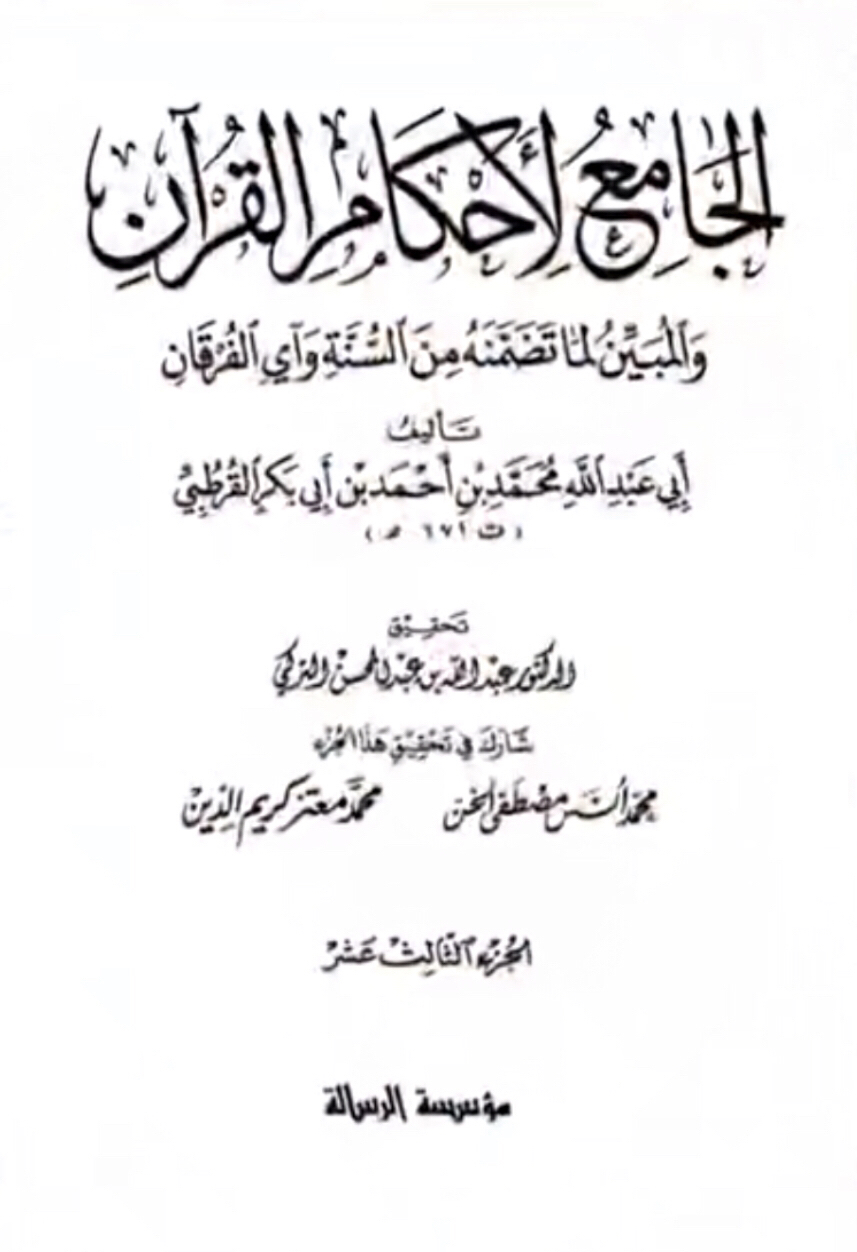 الجَامِعُ لِأَحْكَامِ القُرْآنِ
وَالمُبَيِّنُ لِمَا تَضَمَّنَهُ مِنَ السُّنَّةِ وَآيِ الفُرْقَانِ
تَأليفُ
أَبِي عَبْدِ اللَّهِ مُحَمَّدِ بْنِ أَحْمَدَ بْنِ أَبِي بَكْرٍ القُرْطُبِيِّ
(ت ٦٧١ هـ)
تَحقِيْق
الدكتور عبد الله بن عبد المحسن التركي
شَارَكَ فِي تَحْقِيْقِ هَذَا الجُزْء
محمّد أنس مصْطَفَى الخن محمَّد معتز كريم الدِّين
الجُزءُ الثَّالِث عَشَر
مؤسسة الرسالة